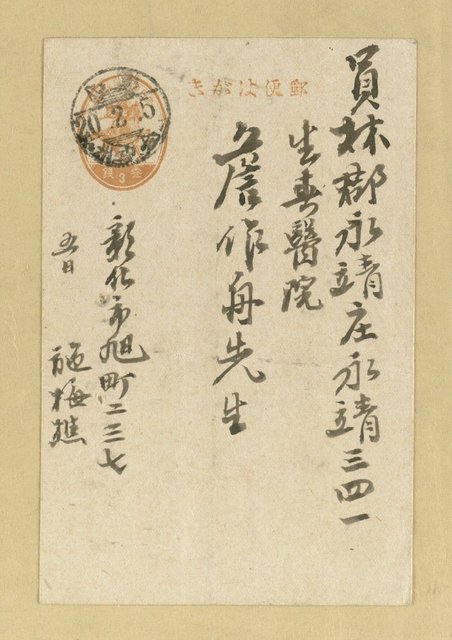 郵便はがき
員林郡永靖庄永靖三四一
生春醫院
詹作舟先生
彰化市旭町二三七
施梅樵
五日
20.2.5
參錢
3